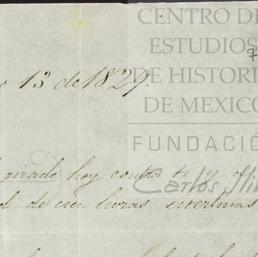 CENTRO DE
ESTUDIOS
DE HISTORI
DE MEXICO
FUNDACIÓ
Carlos Slim
13 de 1829.
girado hoy contra ti y
de cien libras esterlinas